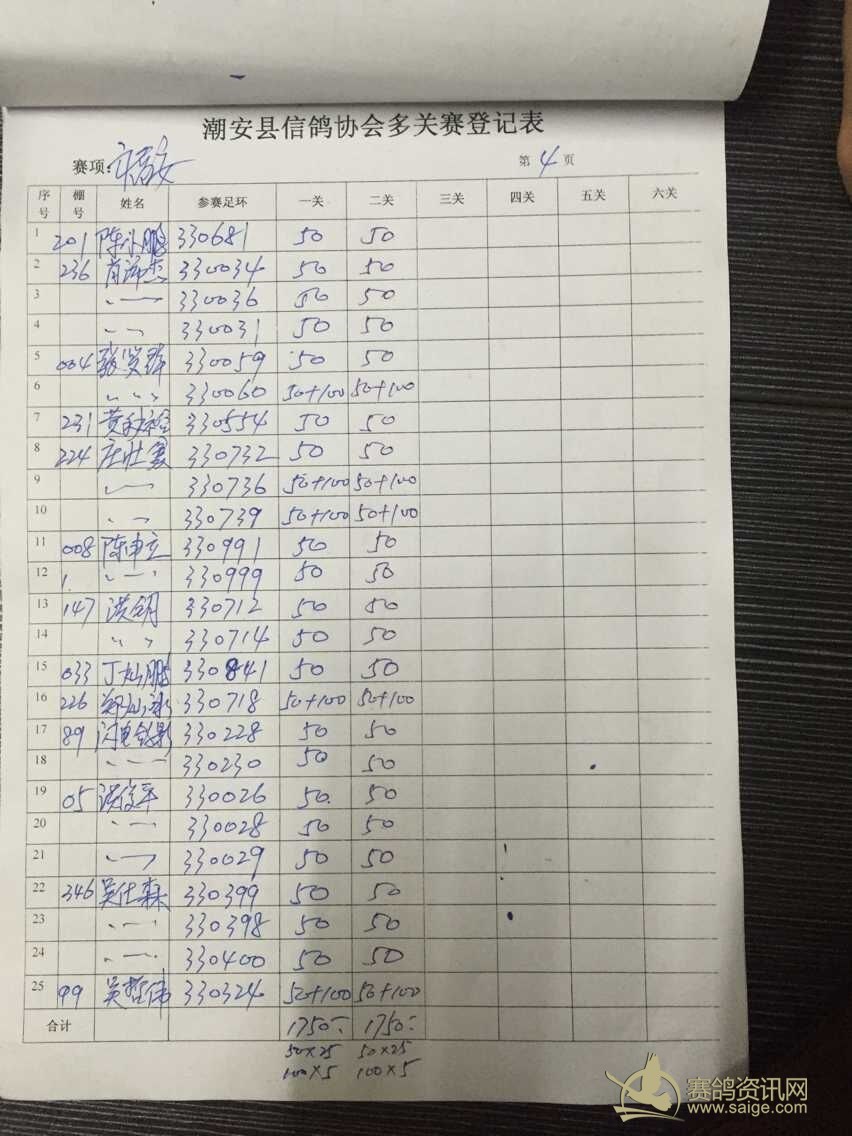 潮安县信鸽协会多关赛登记表
赛项: 吉安 第 4 页
序号 棚号 姓名 参赛足环 一关 二关 三关 四关 五关 六关
1 201 330681 50 50
2 236 330034 50 50
3 330036 50 50
4 330031 50 50
5 004 330059 50 50
6 330060 50+100 50+100
7 231 330554 50 50
8 224 庄壮宴 330732 50 50
9 330736 50+100 50+100
10 330739 50+100 50+100
11 008 陈申立 330991 50 50
12 330999 50 50
13 147 330712 50 50
14 330714 50 50
15 033 丁灿鹏 330841 50 50
16 226 330718 50+100 50+100
17 89 闪电 330228 50 50
18 330230 50 50
19 05 洪俊平 330026 50 50
20 330028 50 50
21 330029 50 50
22 346 吴仕森 330399 50 50
23 330398 50 50
24 330400 50 50
25 99 吴哲伟 330324 50+100 50+100
合计 1750 1750
50×25 50×25
100×5 100×5
赛鸽资讯网
www.saige.com